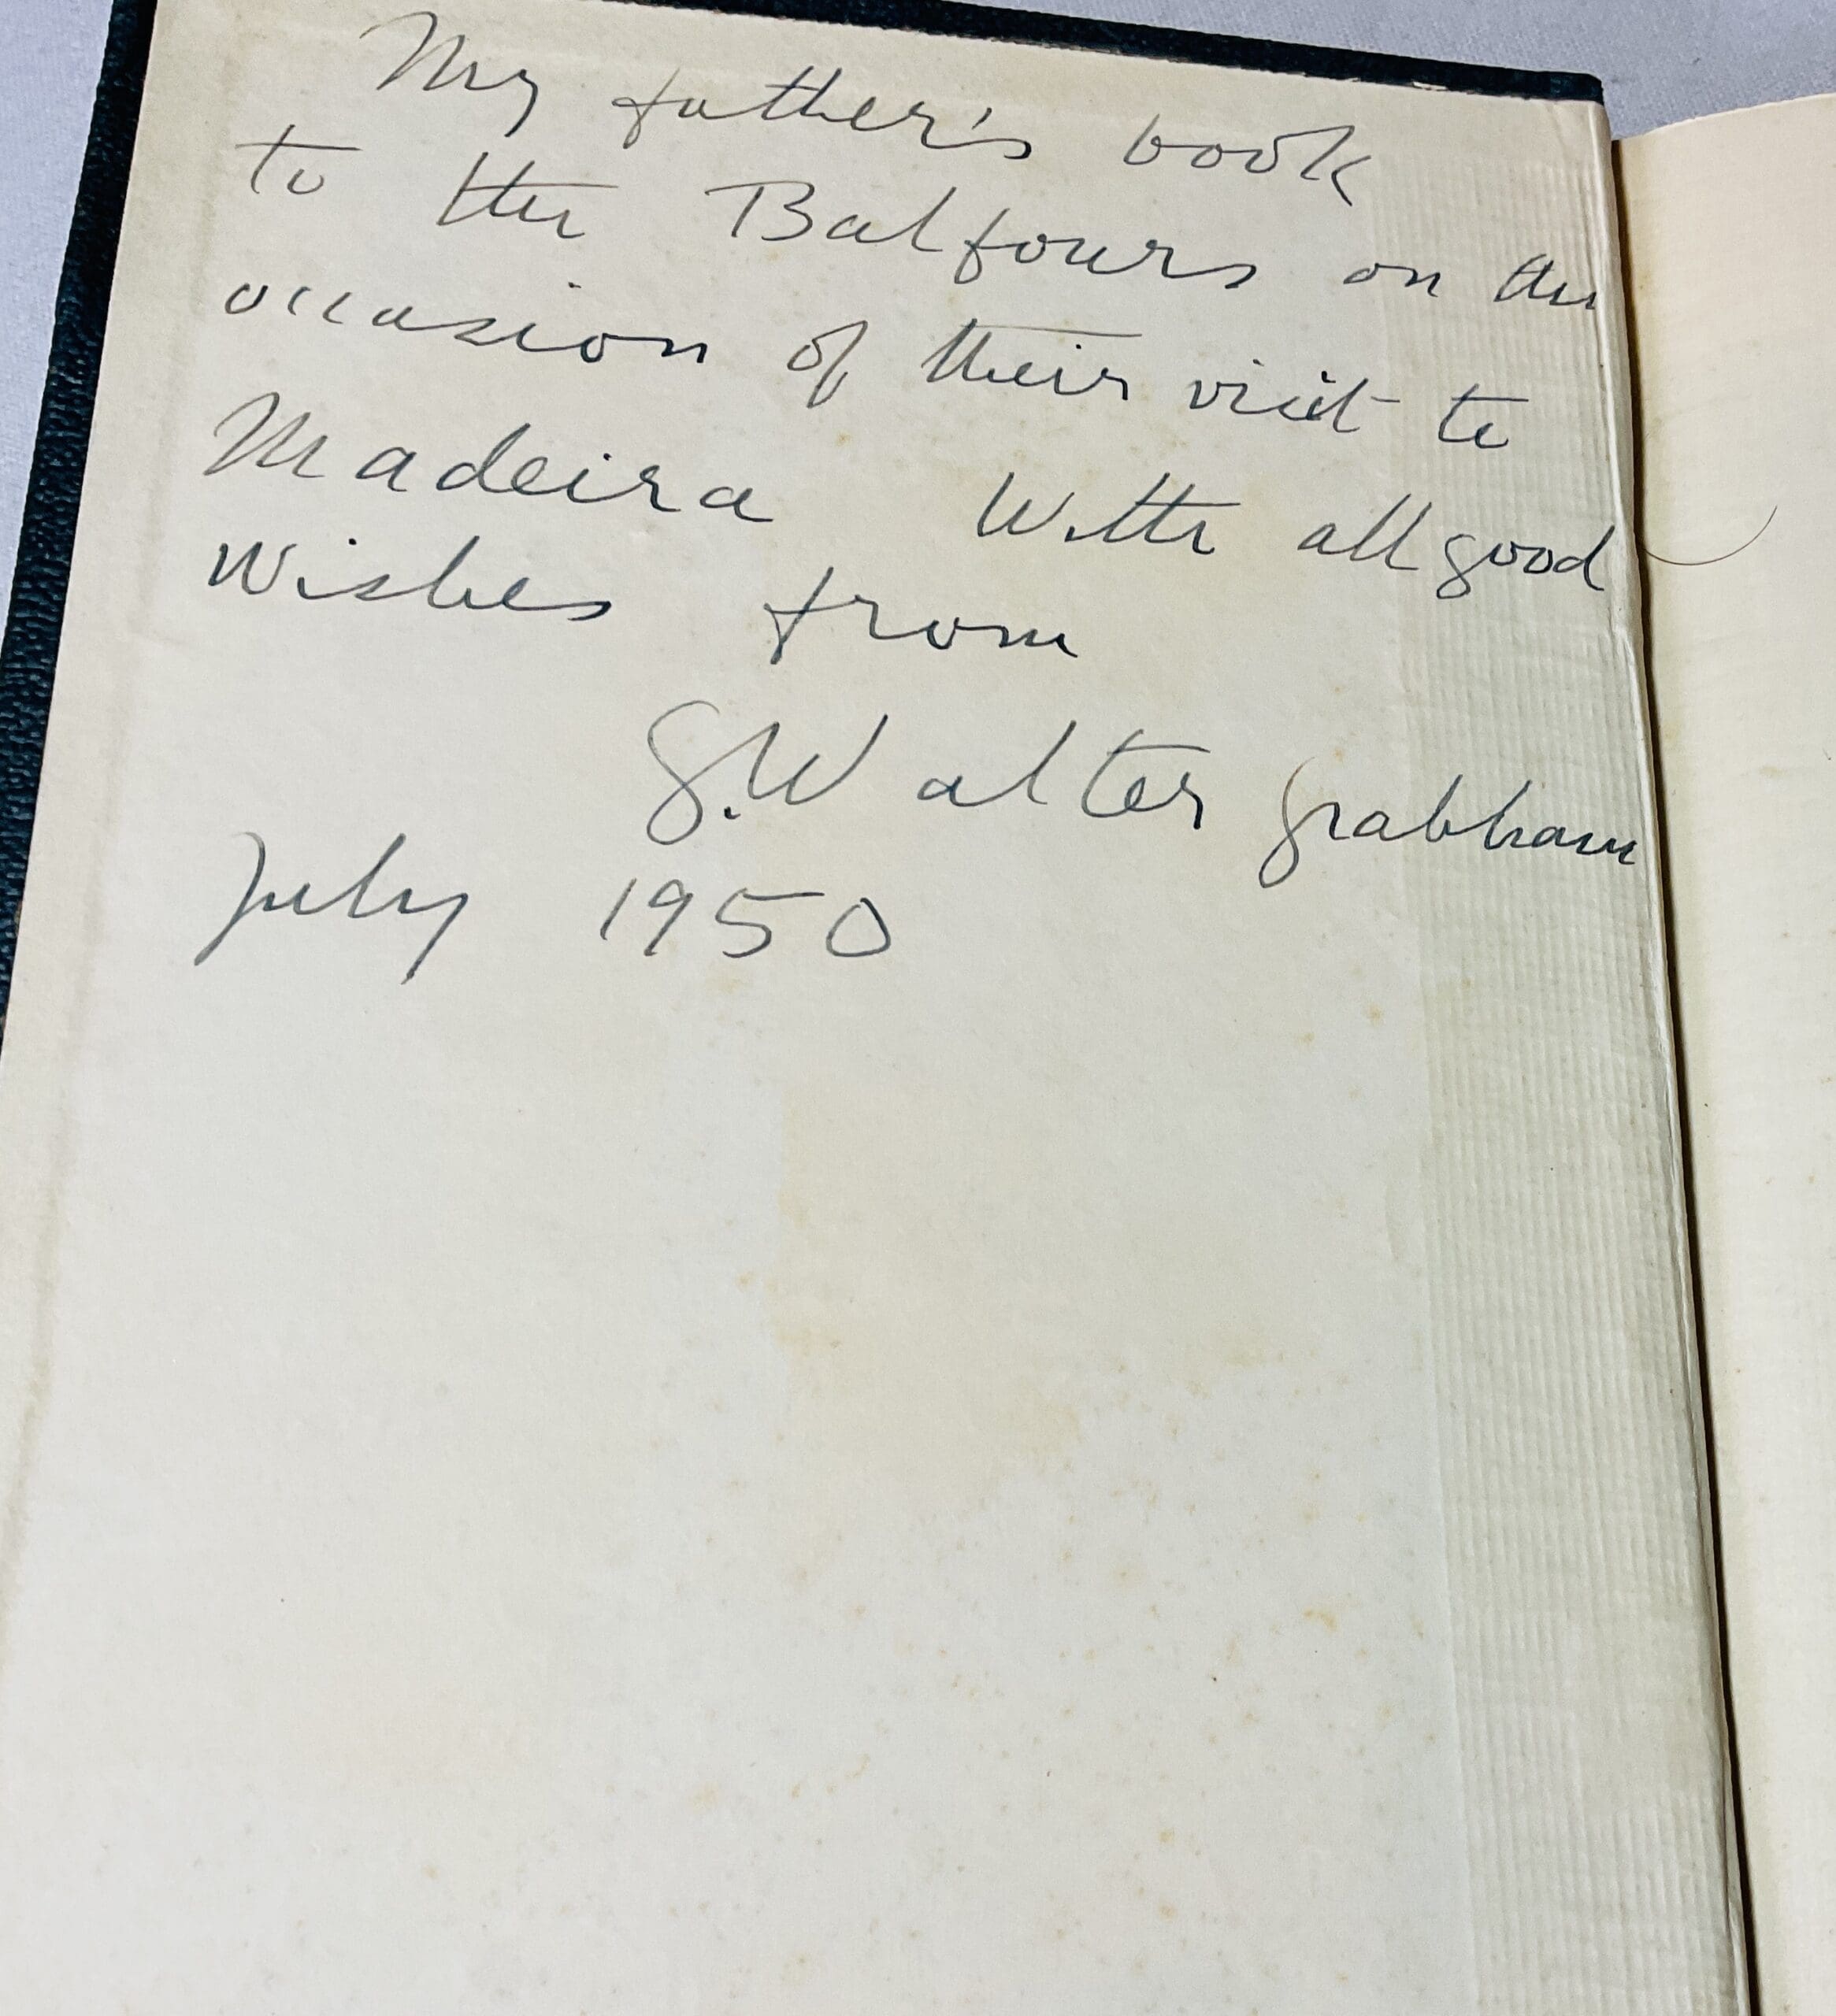 My father's book
to the Balfours on the
occasion of their visit to
Madeira With all good
wishes from
G. Walter Grabham
July 1950